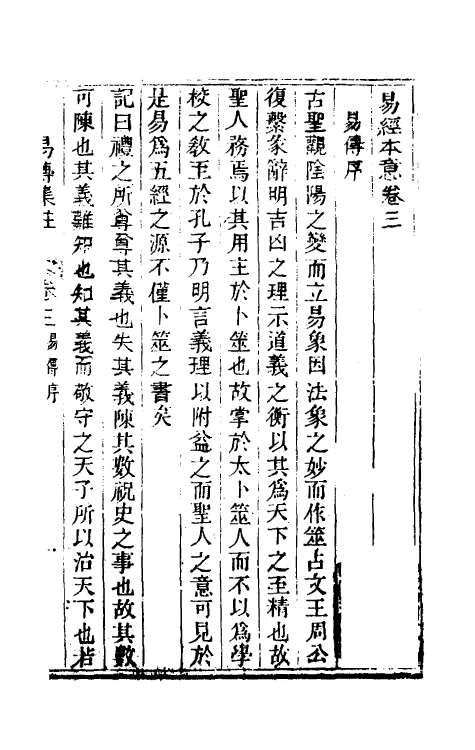 易經本意卷三
易傳序
古聖觀陰陽之變而立易象因法象之妙而作筮占文王周公
復繫彖辭明吉凶之理示道義之衡以其爲天下之至精也故
聖人務焉以其用主於卜筮也故掌於太卜筮人而不以爲學
校之敎至於孔子乃明言義理以附益之而聖人之意可見於
是易爲五經之源不僅卜筮之書矣
記曰禮之所尊尊其義也失其義陳其數祝史之事也故其數
可陳也其義難知也知其義而敬守之天子所以治天下也若
易傳集註 卷三 易傳序 一